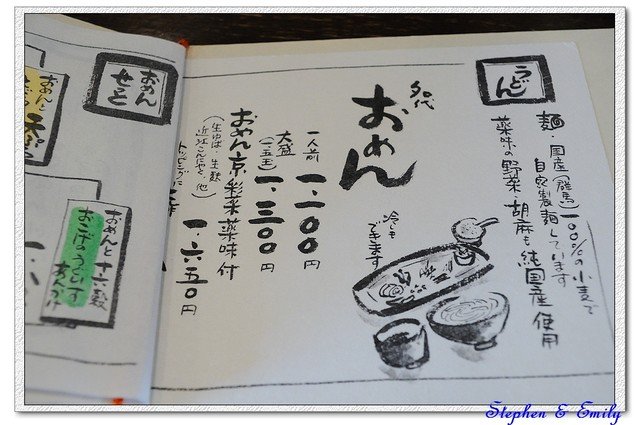 うどん
麺・国産(群馬)一〇〇%の小麦で
自家製麺しています
薬味の野菜 胡麻も純国産使用
名代
おめん
冷もできます
一人前 一、一〇〇円
大盛(一、五玉) 一、三〇〇円
おめん京彩菜薬味付
(生ゆば・生麩
近江こんにゃく、他
一、六五〇円
おめん
せっと
おめんと
おめんと十六穀
おこげのうぐいす
あんかけ
Stephen & Emily